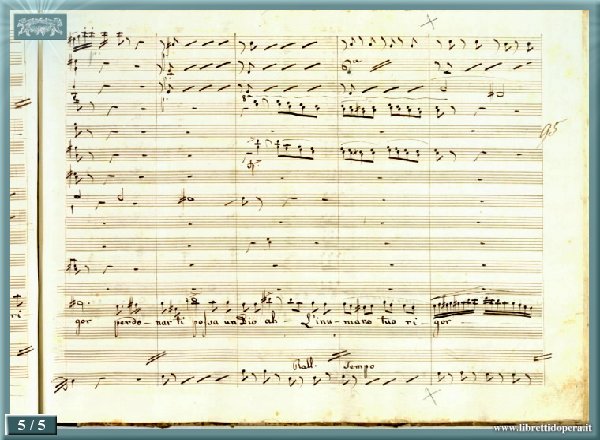 95
ri
gor perdo-nar ti possa un Dio ah - L'inu-mano tuo ri-gor
Rall. Tempo
5 / 5
www.librettidopera.it